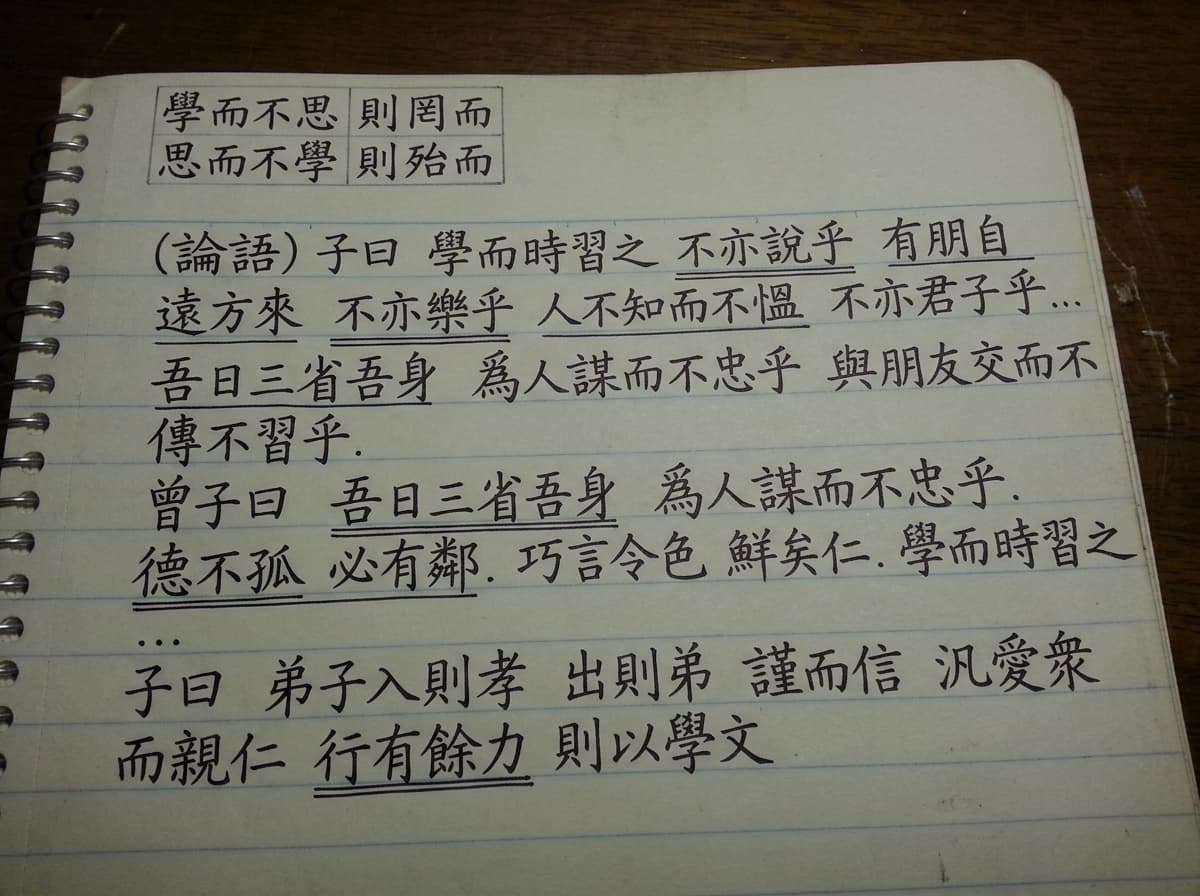 學而不思 則罔而
思而不學 則殆而
(論語) 子曰 學而時習之 不亦說乎 有朋自
遠方來 不亦樂乎 人不知而不慍 不亦君子乎...
吾日三省吾身 爲人謀而不忠乎 與朋友交而不
傳不習乎.
曾子曰 吾日三省吾身 爲人謀而不忠乎.
德不孤 必有鄰. 巧言令色 鮮矣仁. 學而時習之
...
子曰 弟子入則孝 出則弟 謹而信 汎愛衆
而親仁 行有餘力 則以學文